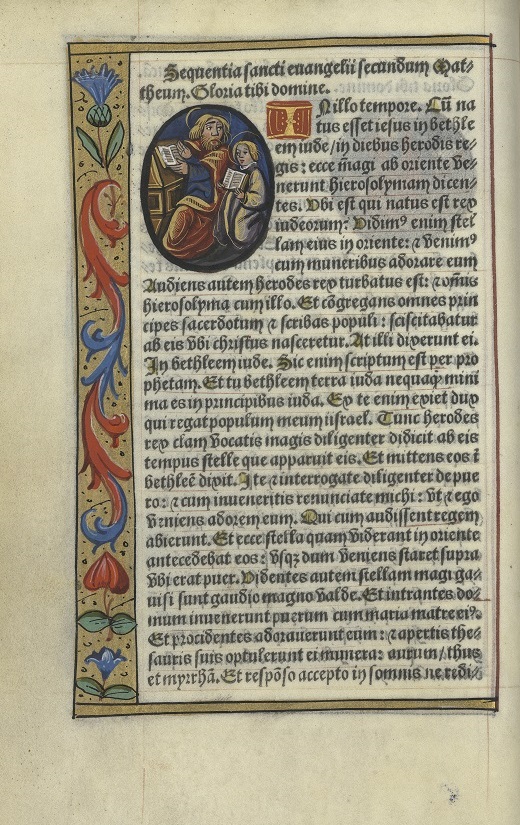 Sequentia sancti euangelii secundum Mat⸗
theum. Gloria tibi domine.
IN illo tempore. Cū na
tus esset iesus in bethle
em iude/in diebus herodis re⸗
gis: ecce magi ab oriente ve⸗
nerunt hierosolymam dicen⸗
tes. Vbi est qui natus est rex
iudeorum? Vidimꝰ enim stel
lam eius in oriente: ⁊ venimꝰ
cum muneribus adorare eum
Audiens autem herodes rex turbatus est: ⁊ om̄is
hierosolyma cum illo. Et cōgregans omnes prin
cipes sacerdotum ⁊ scribas populi: sciscitabatur
ab eis vbi christus nasceretur. At illi dixerunt ei.
In bethleem iude. Sic enim scriptum est per pro
phetam. Et tu bethleem terra iuda nequaq̄ mini
ma es in principibus iuda. Ex te enim exiet dux
qui regat populum meum israel. Tunc herodes
rex clam vocatis magis diligenter didicit ab eis
tempus stelle que apparuit eis. Et mittens eos ī
bethleē dixit. Ite ⁊ interrogate diligenter de pue
ro: ⁊ cum inueneritis renunciate michi: vt ⁊ ego
veniens adorem eum. Qui cum audissent regem
abierunt. Et ecce stella quam viderant in oriente
antecedebat eos: vsqꝫ dum veniens staret supra
vbi erat puer. Videntes autem stellam magi ga⸗
uisi sunt gaudio magno valde. Et intrantes do⸗
mum inuenerunt puerum cum maria matre eiꝰ.
Et procidentes adorauerunt eum: ⁊ apertis the⸗
sauris suis optulerunt ei munera: aurum/thus
et myrrhā. Et respōso accepto in somnis ne redi⸗